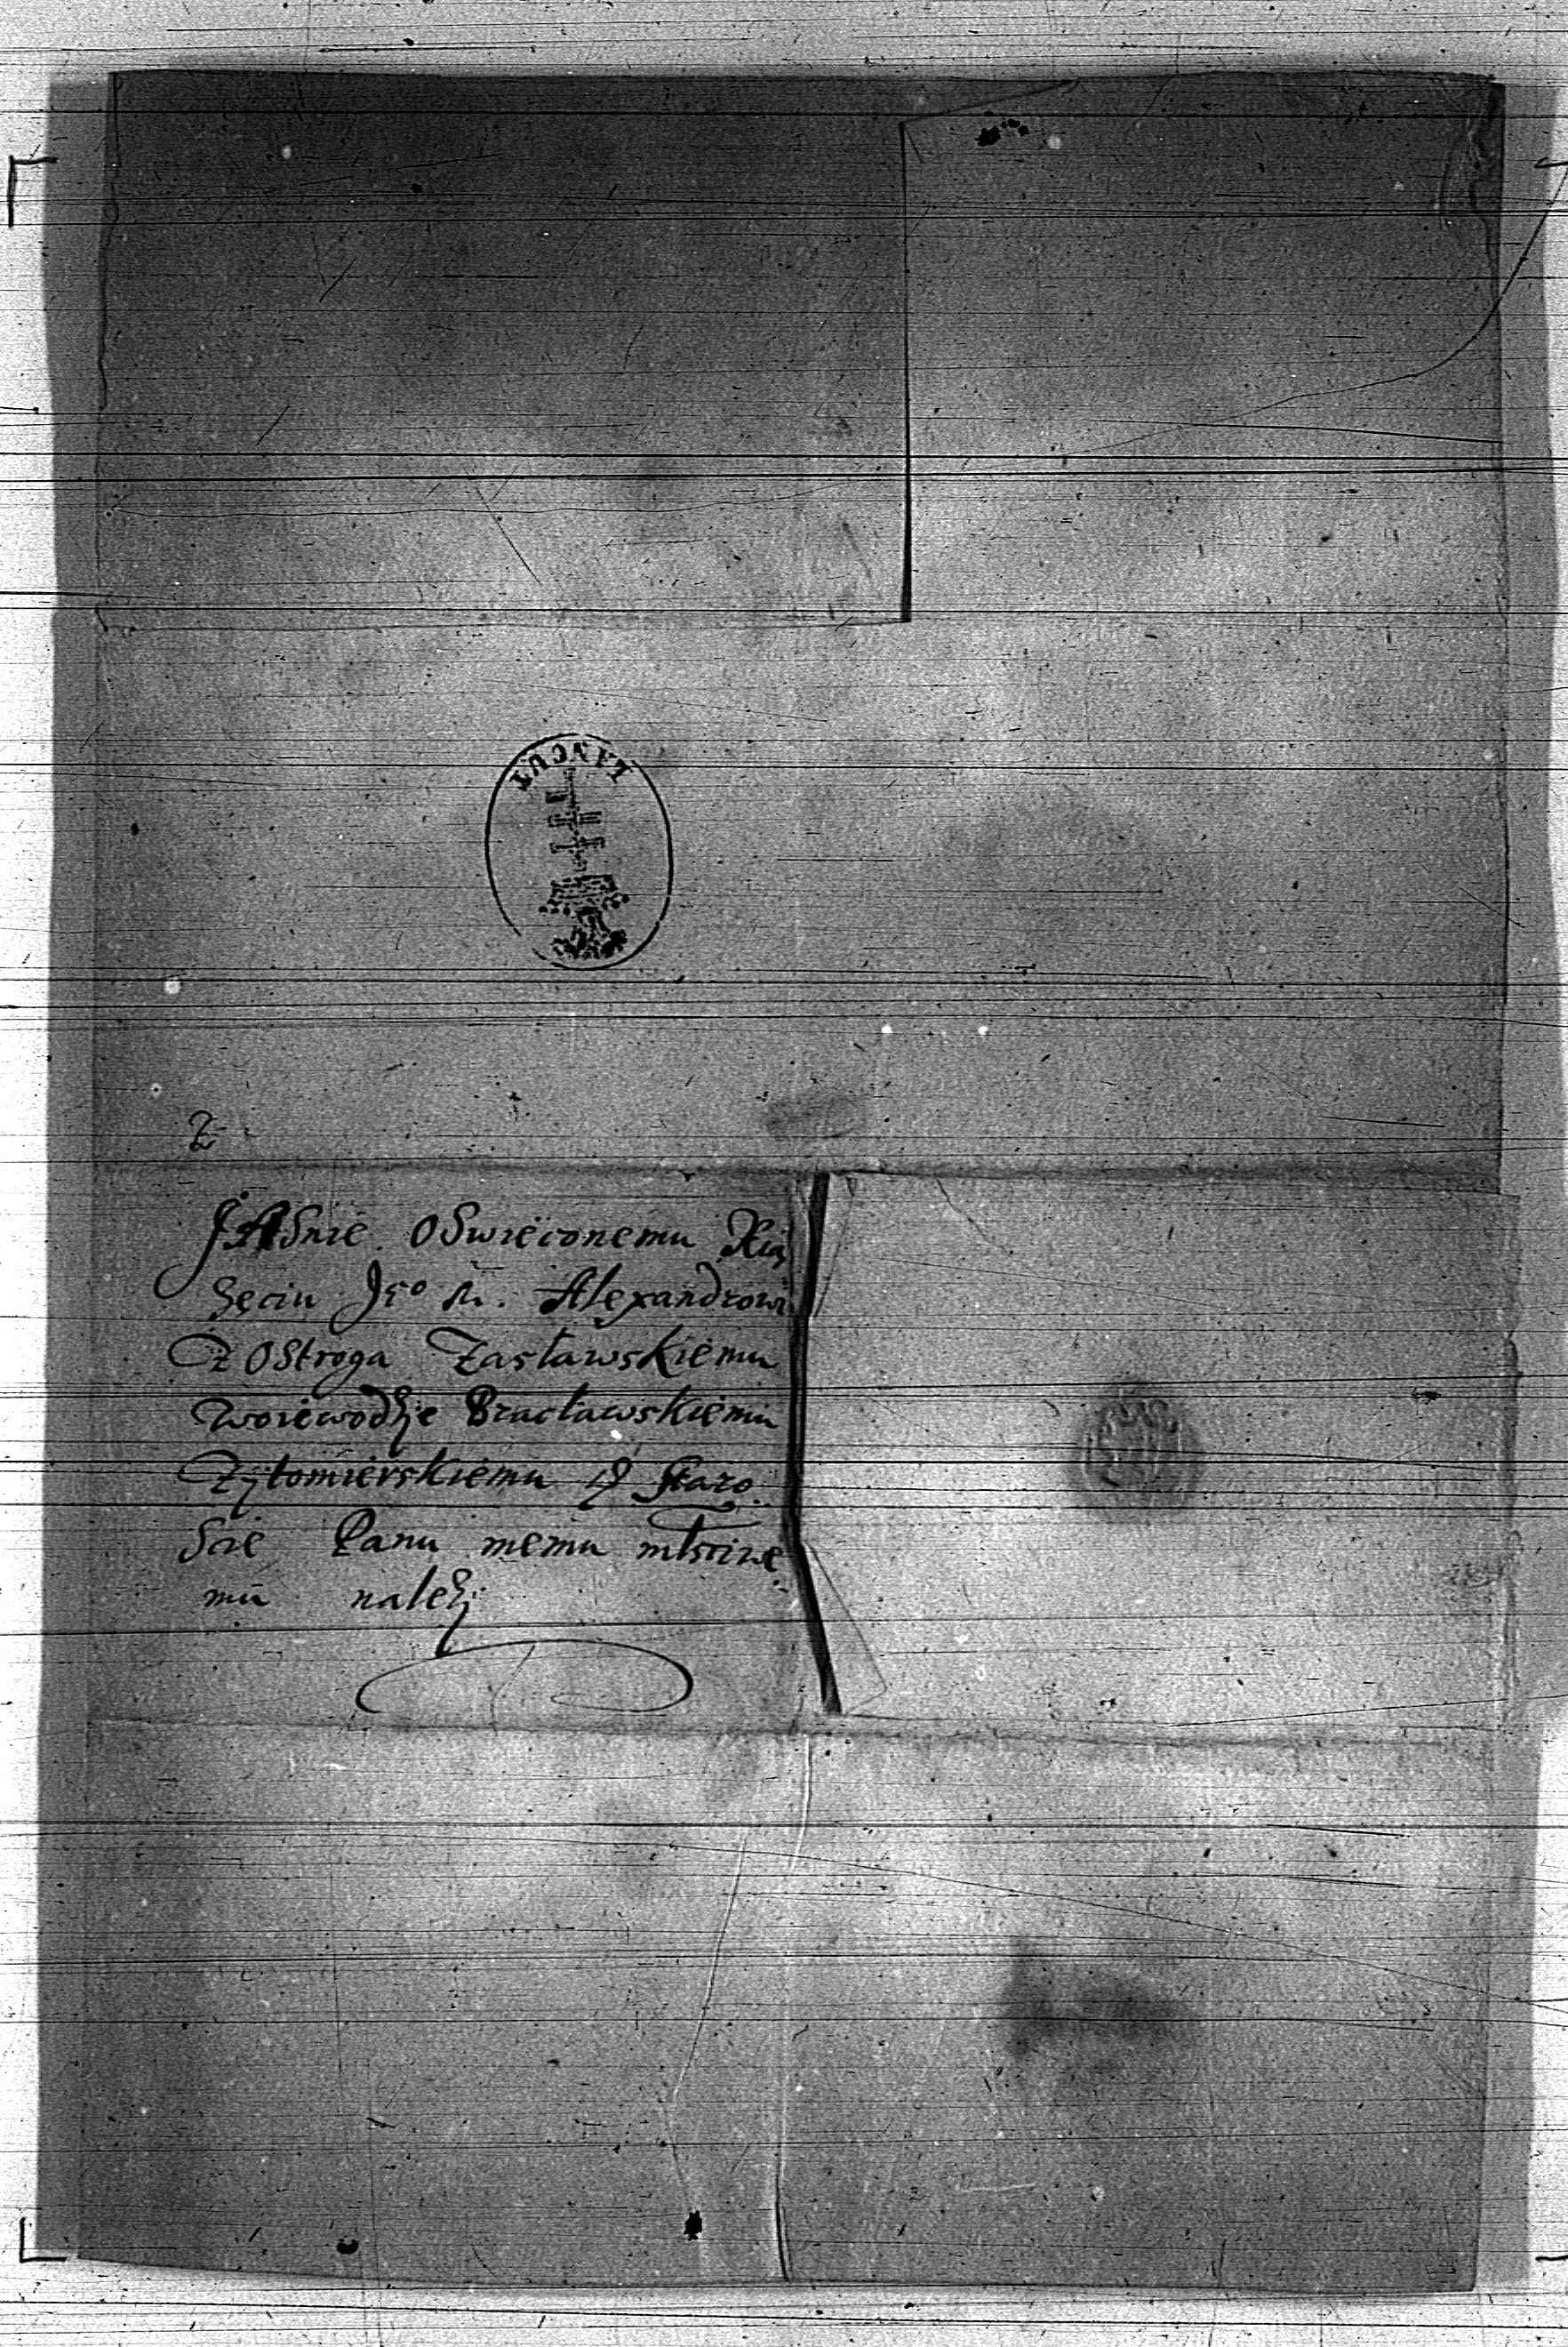 ŁAŃCUT
JAsnie Oswieconemu Xią
żęciu Jeo M. Alexandrowi
Z Ostroga Zasławskiemu
Woiewodzie Bracławskiemu
Zÿtomierskiemu Staro
scie Panu memu młsciwe
mu należÿ